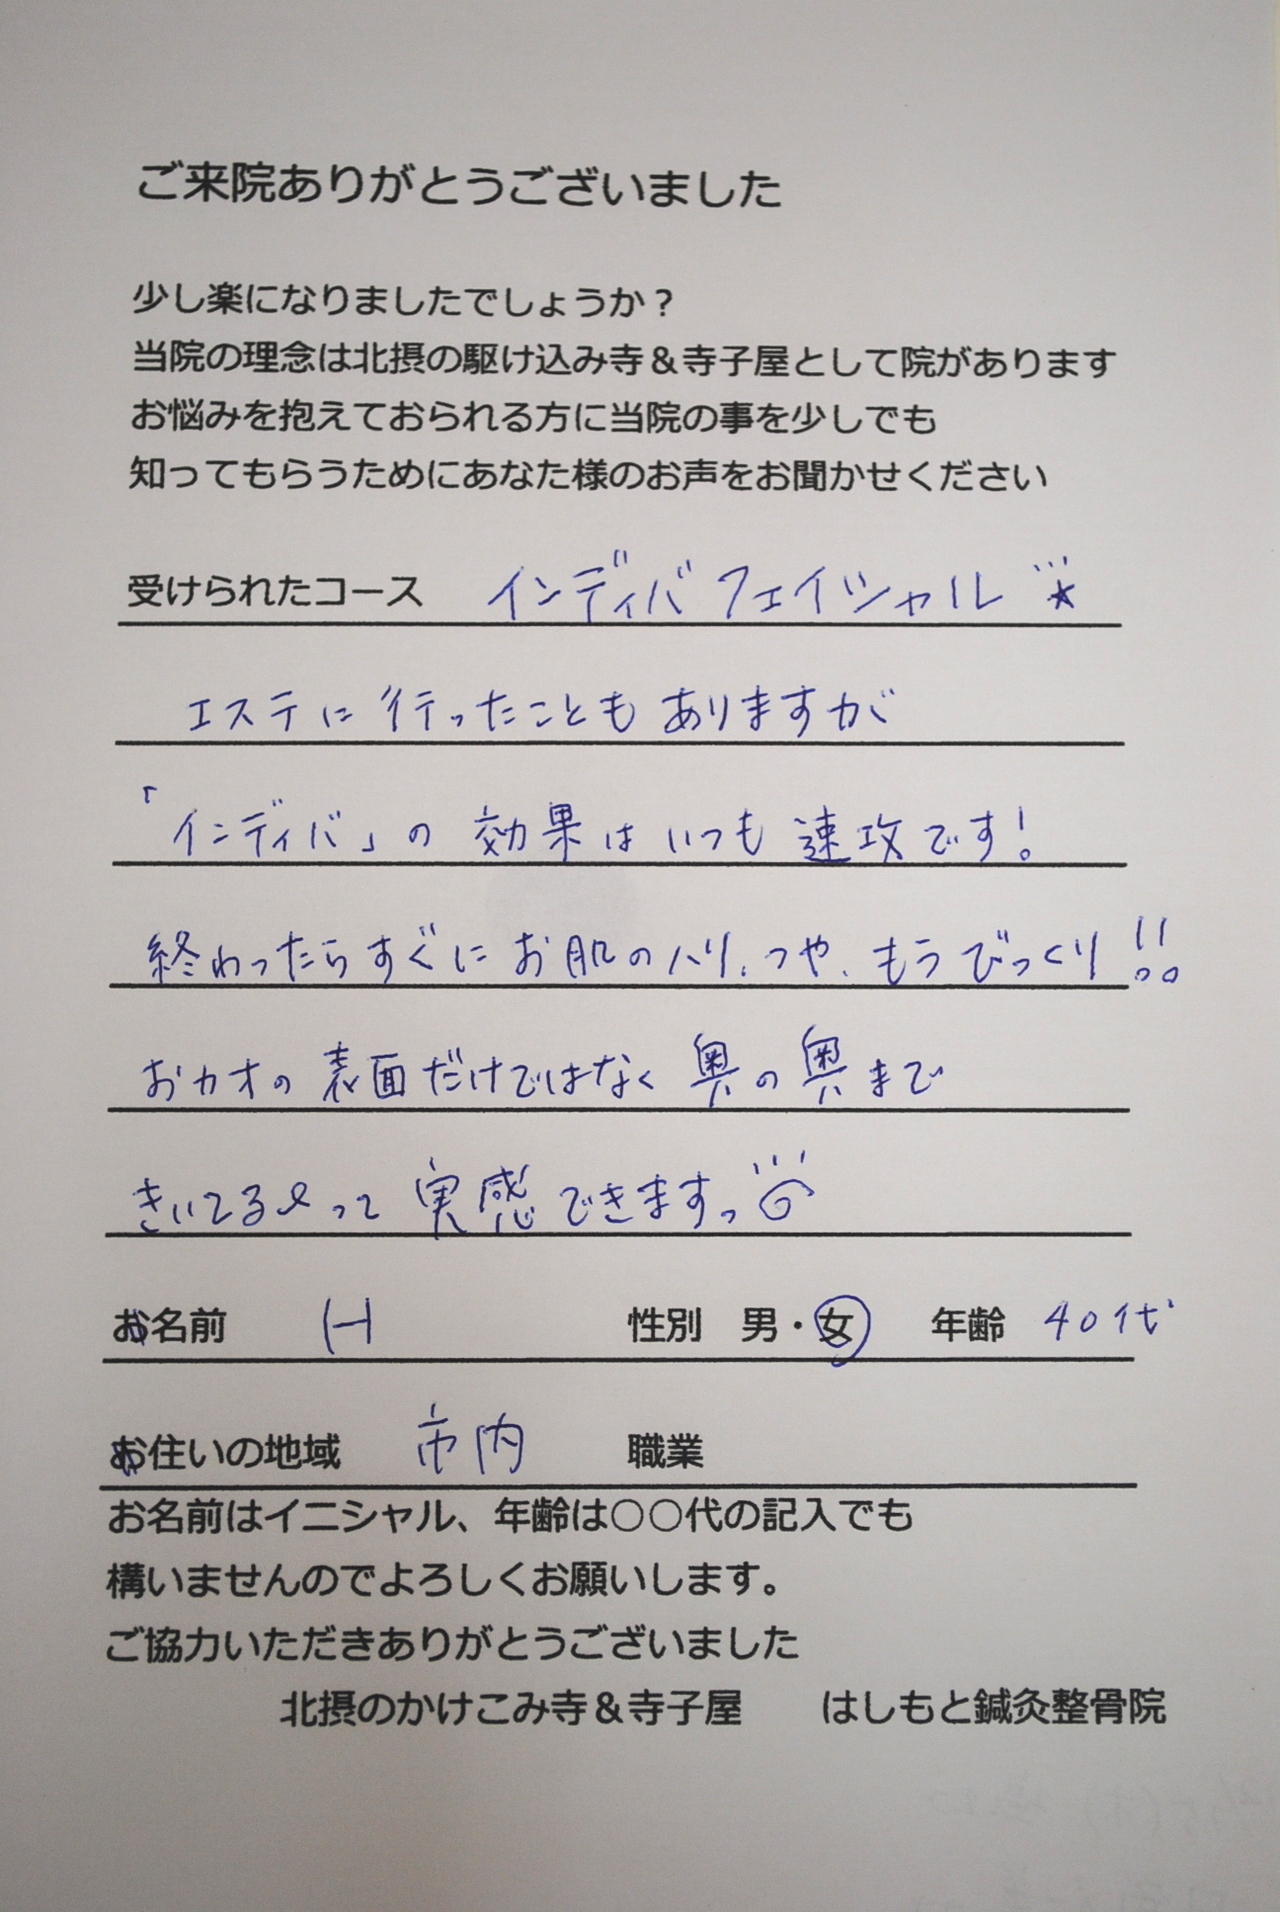 ご来院ありがとうございました
少し楽になりましたでしょうか？
当院の理念は北摂の駆け込み寺＆寺子屋として院があります
お悩みを抱えておられる方に当院の事を少しでも
知ってもらうためにあなた様のお声をお聞かせください
受けられたコース　インディバ フェイシャル ☆
エステに行ったこともありますが
「インディバ」の効果はいつも速攻です！
終わったらすぐにお肌のハリ、つや、もうびっくり！！
おカオの表面だけではなく奥の奥まで
きいてるって実感できますっ
お名前　H　性別　男・女　年齢　40代
お住いの地域　市内　職業
お名前はイニシャル、年齢は○○代の記入でも
構いませんのでよろしくお願いします。
ご協力いただきありがとうございました
北摂のかけこみ寺＆寺子屋　はしもと鍼灸整骨院